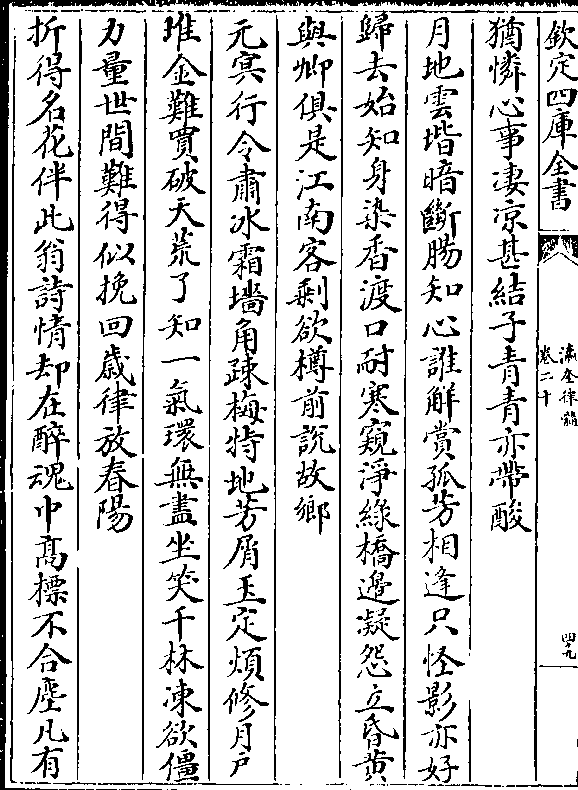 欽定四庫全書
瀛奎律髓
卷二十
四十九
猶憐心事凄凉甚結子青青亦帶酸
月地雲堦暗斷腸知心誰解賞孤芳相逢只怪影亦好
歸去始知身染香渡口耐寒窺淨綠橋邊凝怨立昏黄
與卿俱是江南客剩欲樽前說故鄉
元冥行令肅冰霜墻角疎梅特地芳屑玉定煩修月户
堆金難買破天荒了知一氣環無盡坐笑千林凍欲僵
力量世間難得似挽回歲律放春陽
折得名花伴此翁詩情却在醉魂中高標不合塵凡有